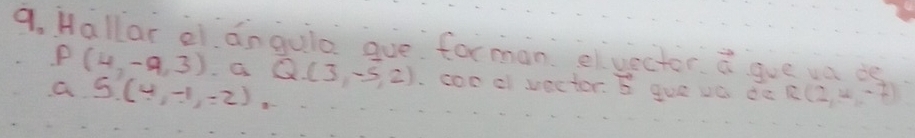 9. Hallar el ángulo que forman el vector a⃗ que va de
P(4,-9,3). a Q.(3,-5,2). con el vector. b⃗ que va de R(2,4,-7)
a S.(4,-1,-2).